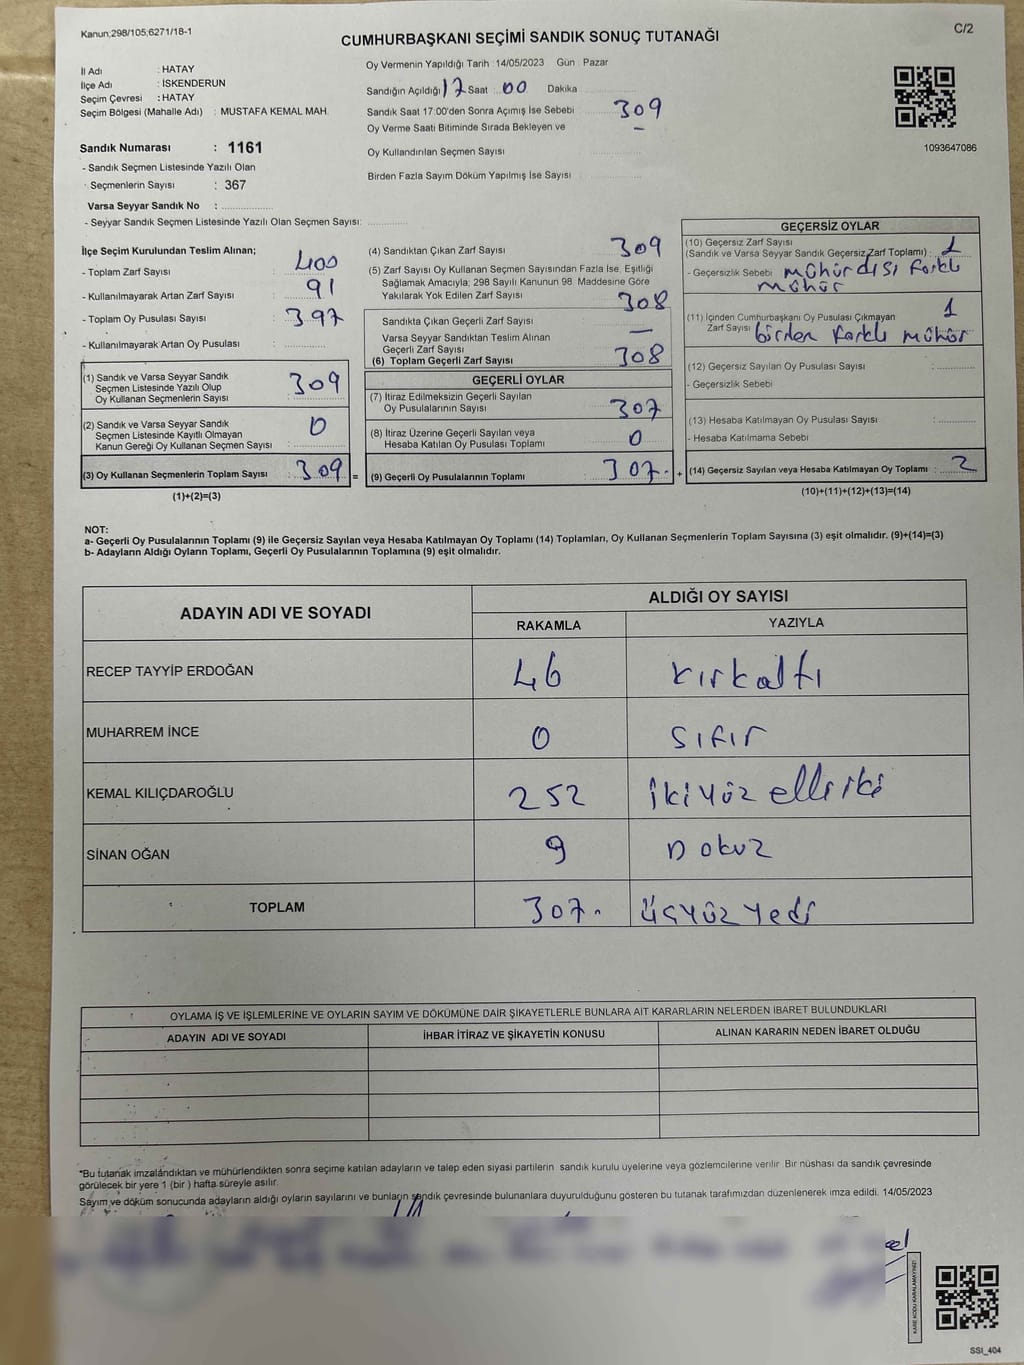 Kanun;298/105;6271/18-1
C/2
CUMHURBAŞKANI SEÇİMİ SANDIK SONUÇ TUTANAĞI
İl Adı : HATAY
İlçe Adı : İSKENDERUN
Seçim Çevresi : HATAY
Seçim Bölgesi (Mahalle Adı) : MUSTAFA KEMAL MAH.
Oy Vermenin Yapıldığı Tarih :14/05/2023 Gün : Pazar
Sandığın Açıldığı 17 Saat 00 Dakika
Sandık Saat 17:00'den Sonra Açımış İse Sebebi 309
Oy Verme Saati Bitiminde Sırada Bekleyen ve –
Oy Kullandırılan Seçmen Sayısı
Birden Fazla Sayım Döküm Yapılmış İse Sayısı
1093647086
Sandık Numarası : 1161
- Sandık Seçmen Listesinde Yazılı Olan
Seçmenlerin Sayısı : 367
Varsa Seyyar Sandık No :
- Seyyar Sandık Seçmen Listesinde Yazılı Olan Seçmen Sayısı:
İlçe Seçim Kurulundan Teslim Alınan;
- Toplam Zarf Sayısı : 400
- Kullanılmayarak Artan Zarf Sayısı : 91
- Toplam Oy Pusulası Sayısı : 397
- Kullanılmayarak Artan Oy Pusulası :
(1) Sandık ve Varsa Seyyar Sandık
Seçmen Listesinde Yazılı Olup
Oy Kullanan Seçmenlerin Sayısı : 309
(2) Sandık ve Varsa Seyyar Sandık
Seçmen Listesinde Kayıtlı Olmayan
Kanun Gereği Oy Kullanan Seçmen Sayısı : 0
(3) Oy Kullanan Seçmenlerin Toplam Sayısı : 309
(1)+(2)=(3)
(4) Sandıktan Çıkan Zarf Sayısı 309
(5) Zarf Sayısı Oy Kullanan Seçmen Sayısından Fazla İse, Eşitliği
Sağlamak Amacıyla; 298 Sayılı Kanunun 98. Maddesine Göre
Yakılarak Yok Edilen Zarf Sayısı
308
Sandıkta Çıkan Geçerli Zarf Sayısı
Varsa Seyyar Sandıktan Teslim Alınan –
Geçerli Zarf Sayısı
(6) Toplam Geçerli Zarf Sayısı 308
=
GEÇERLİ OYLAR
(7) İtiraz Edilmeksizin Geçerli Sayılan
Oy Pusulalarının Sayısı 307
(8) İtiraz Üzerine Geçerli Sayılan veya
Hesaba Katılan Oy Pusulası Toplamı 0
(9) Geçerli Oy Pusulalarının Toplamı 307.
+
GEÇERSİZ OYLAR
(10) Geçersiz Zarf Sayısı
(Sandık ve Varsa Seyyar Sandık Geçersiz Zarf Toplamı) : 1
- Geçersizlik Sebebi mühür dışı farklı
mühür
(11) İçinden Cumhurbaşkanı Oy Pusulası Çıkmayan 1
Zarf Sayısı birden farklı mühür
(12) Geçersiz Sayılan Oy Pusulası Sayısı :
- Geçersizlik Sebebi
(13) Hesaba Katılmayan Oy Pusulası Sayısı :
- Hesaba Katılmama Sebebi
(14) Geçersiz Sayılan veya Hesaba Katılmayan Oy Toplamı : 2
(10)+(11)+(12)+(13)=(14)
NOT:
a- Geçerli Oy Pusulalarının Toplamı (9) ile Geçersiz Sayılan veya Hesaba Katılmayan Oy Toplamı (14) Toplamları, Oy Kullanan Seçmenlerin Toplam Sayısına (3) eşit olmalıdır. (9)+(14)=(3)
b- Adayların Aldığı Oyların Toplamı, Geçerli Oy Pusulalarının Toplamına (9) eşit olmalıdır.
ADAYIN ADI VE SOYADI
ALDIĞI OY SAYISI
RAKAMLA YAZIYLA
RECEP TAYYİP ERDOĞAN 46 kırkaltı
MUHARREM İNCE 0 sıfır
KEMAL KILIÇDAROĞLU 252 ikiyüz elliiki
SİNAN OĞAN 9 Dokuz
TOPLAM 307. üçyüz yedi
OYLAMA İŞ VE İŞLEMLERİNE VE OYLARIN SAYIM VE DÖKÜMÜNE DAİR ŞİKAYETLERLE BUNLARA AİT KARARLARIN NELERDEN İBARET BULUNDUKLARI
ADAYIN ADI VE SOYADI İHBAR İTİRAZ VE ŞİKAYETİN KONUSU ALINAN KARARIN NEDEN İBARET OLDUĞU
*Bu tutanak imzalandıktan ve mühürlendikten sonra seçime katılan adayların ve talep eden siyasi partilerin sandık kurulu üyelerine veya gözlemcilerine verilir. Bir nüshası da sandık çevresinde
görülecek bir yere 1 (bir) hafta süreyle asılır.
Sayım ve döküm sonucunda adayların aldığı oyların sayılarını ve bunların sandık çevresinde bulunanlara duyurulduğunu gösteren bu tutanak tarafımızdan düzenlenerek imza edildi. 14/05/2023
KARE KODU KARALAMAYINIZ!
SSI_404